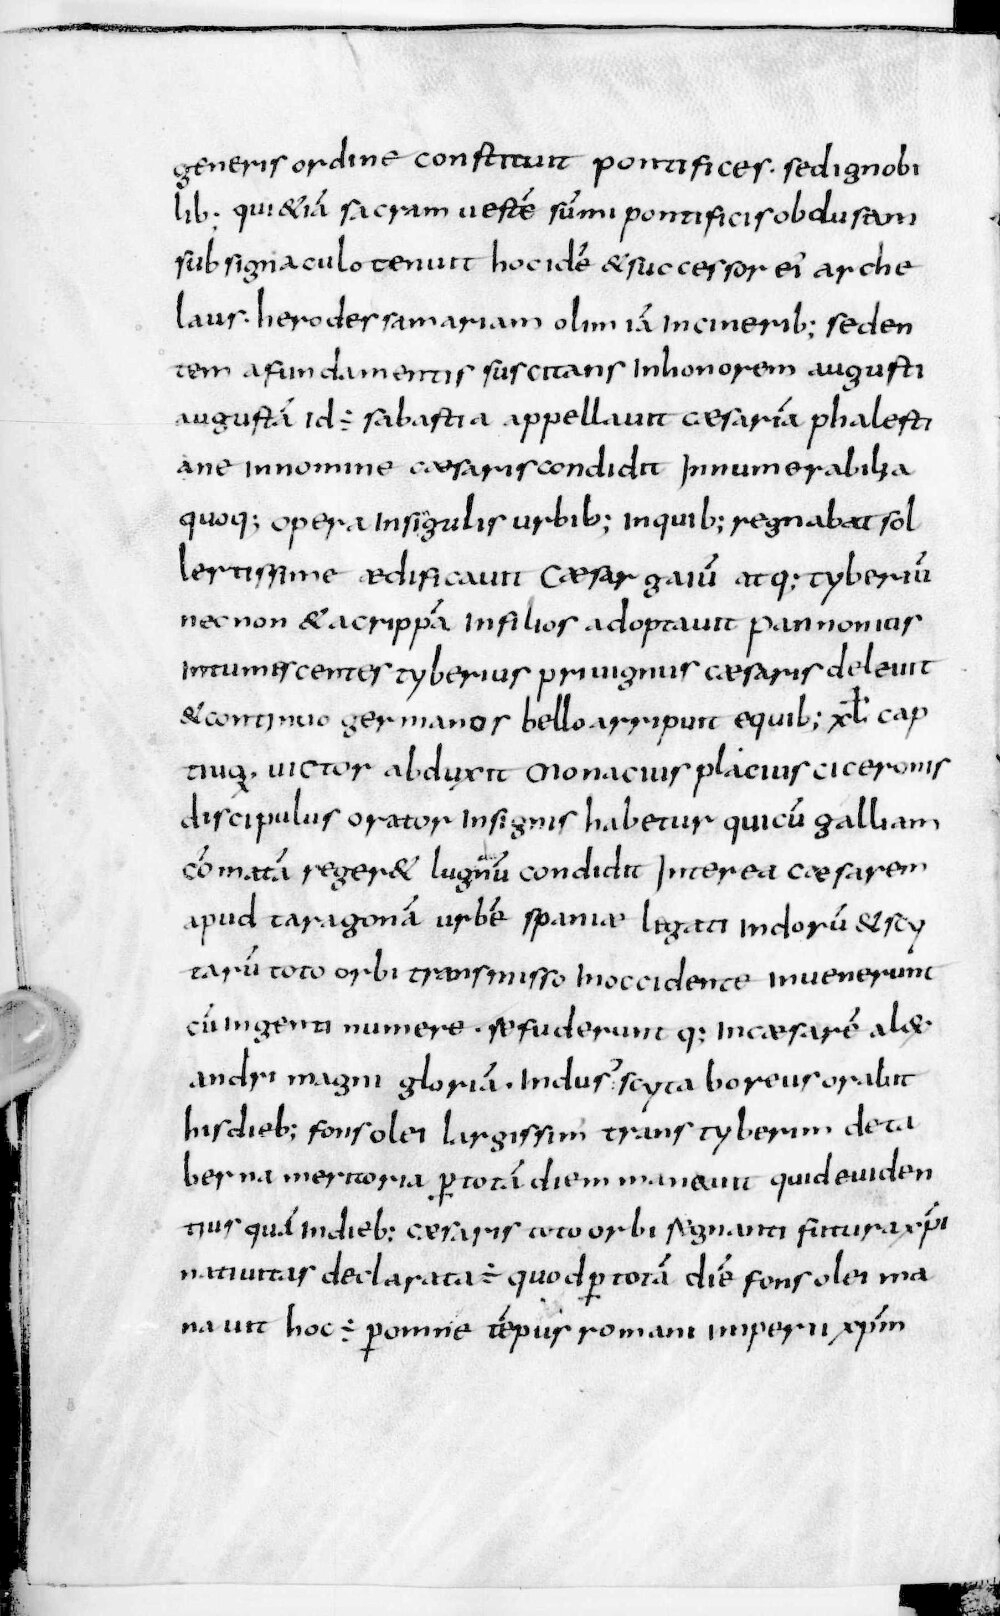 generis ordine constituit pontifices. sed ignobi
lib; qui &iā sacram uestē sūmi pontificis obdustam
sub signaculo tenuit hoc idē & successor eī arche
laus. herodes samariam olim iā incinerib; seden
tem afundamentis suscitans inhonorem augusti
augustā id÷ sabastia appellauit cæsariā phalesti
ane innomine cæsaris condidit Innumerabilia
quoq; opera insigulis urbib; inquib; regnabat sol
lertissime ædificauit Cæsar gaiū atq; tyberiū
necnon & acrippā infilios adoptauit pannonitis
intumiscentes tyberius priuignus cæsaris deleuit
& continuo germanos bello arripuit equib; xl cap
tiuq. uictor abduxit Monacius placius ciceronis
discipulus orator insignis habetur qui cū galliam
cōmatā reger& lugnū condidit Interea cæsarem
apud taragonā urbē spaniæ legati indorū & scy
tarū toto orbi transmisso inoccidente inuenerunt
cū ingenti numere. refuderunt q; incæsarē alex
andri magni gloriā. indus scyta boreus orabit
hisdieb; fons olei largissim trans tyberim deta
berna meritoria p totā diem maneuit quid euiden
tius quā indieb; cæsaris toto orbi regnanti futura xp̄i
natiuitas declarata÷ quod p totā diē fons olei ma
nauit hoc÷ p omne tēpus romani imperii xp̄m